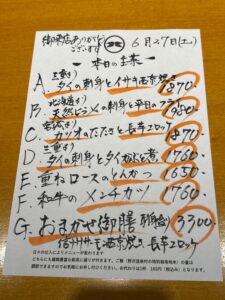 御来店ありがとう
ございます
6月27日(土)
本日の主菜
A. 三重より
タイの刺身とイサキ西京焼き 1870-
B. 北海道より
天然ヒラメの刺身と平目のフライ 1980-
C. 宮城より
カツオのたたきと長芋コロッケ 1870-
D. 三重より
タイの刺身とタイかぶと煮 1760-
E. 重ねロースのとんかつ 1650-
F. 和牛のメンチカツ 1760-
G. おまかせ御膳 3300-
信州サーモン西京焼と長芋コロッケ
日々の仕入によりメニューが変わります